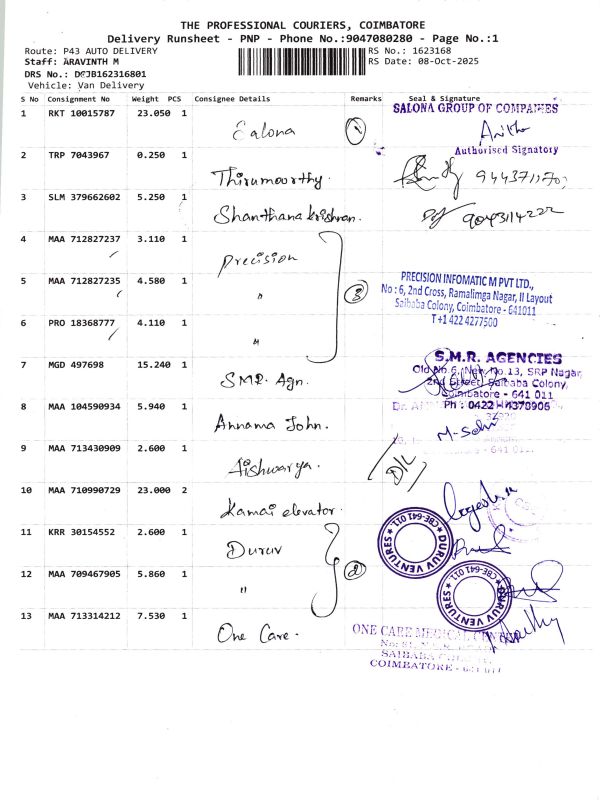 THE PROFESSIONAL COURIERS, COIMBATORE
Delivery Runsheet - PNP - Phone No.:9047080280 - Page No.:1
Route: P43 AUTO DELIVERY RS No.: 1623168
Staff: ARAVINTH M RS Date: 08-Oct-2025
DRS No.: DCJB162316801
Vehicle: Van Delivery
S No Consignment No Weight PCS Consignee Details Remarks Seal & Signature
1 RKT 10015787 23.050 1 Salona 1 SALONA GROUP OF COMPANIES
Authorised Signatory
2 TRP 7043967 0.250 1 Thirumoorthy.
3 SLM 379662602 5.250 1 Shanthana krishnan. 9043114222
4 MAA 712827237 3.110 1 Precision
5 MAA 712827235 4.580 1 " 3 PRECISION INFOMATIC M PVT LTD.,
No : 6, 2nd Cross, Ramalimga Nagar, II Layout
Saibaba Colony, Coimbatore - 641011
T+91 422 4277500
6 PRO 18368777 4.110 1 "
7 MGD 497698 15.240 1 SMR. Agn. S.M.R. AGENCIES
Old No.6, New No.13, SRP Nagar,
2nd Street, Saibaba Colony,
Coimbatore - 641 011
Ph : 0422
8 MAA 104590934 5.940 1 Annama John.
9 MAA 713430909 2.600 1 Aishwarya. D/L
- 641 011
10 MAA 710990729 23.000 2 Kamai elevator.
11 KRR 30154552 2.600 1 Duruv DURUV VENTURES CBE-641 011
12 MAA 709467905 5.860 1 " 2 DURUV VENTURES CBE-641 011
13 MAA 713314212 7.530 1 One Care. ONE CARE MEDICAL CENTRE
SAIBABA
COIMBATORE - 641 011